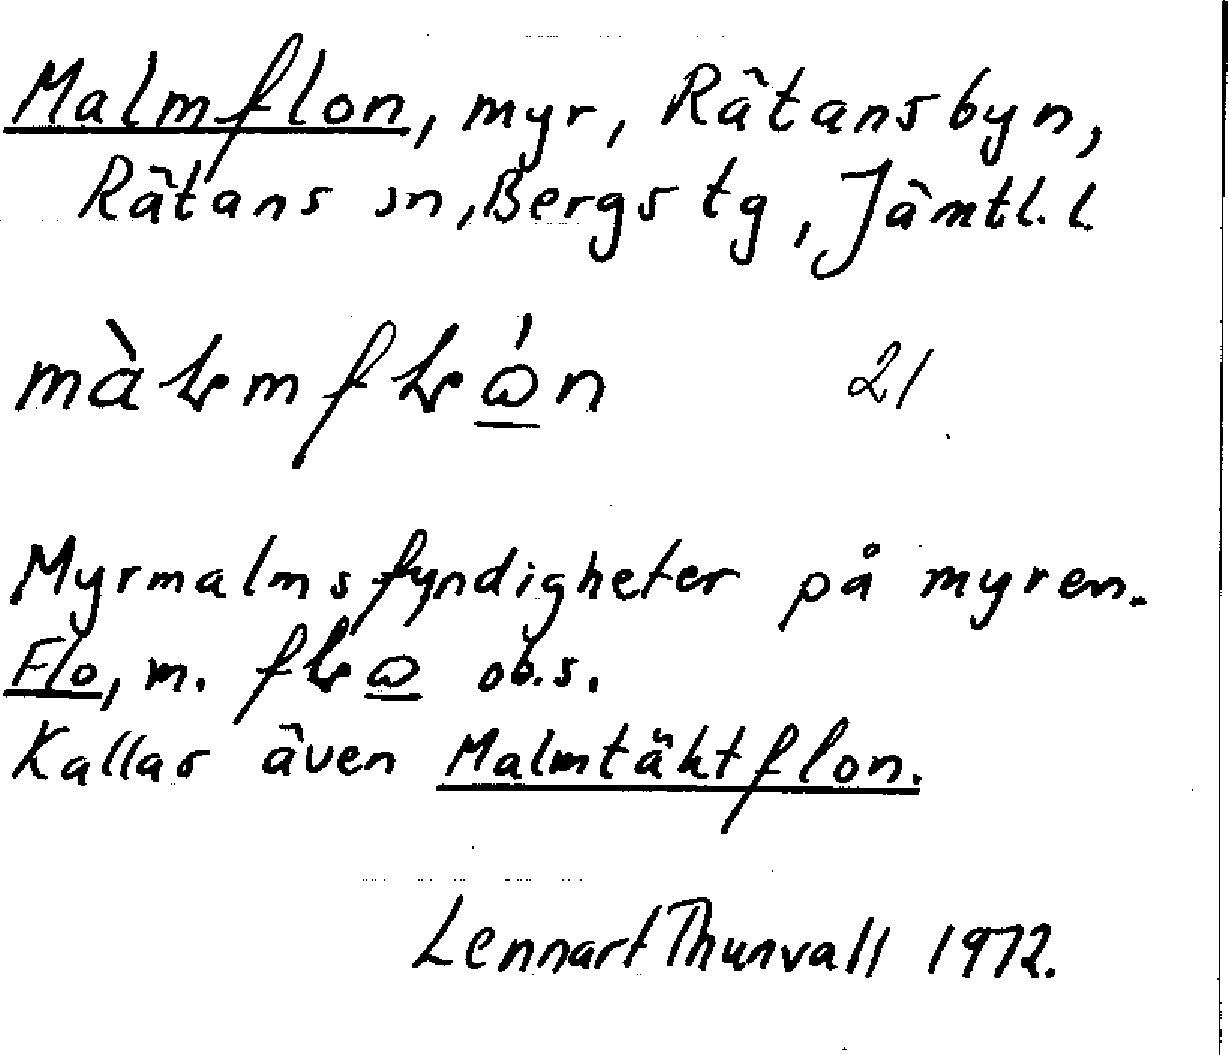 Malmflon, myr, Rätansbyn,
Rätans sn, Bergs tg, Jämtl. l.
21
Myrmalmsfyndigheter på myren.
Flo, m. obs.
Kallas även Malmtäktflon.
Lennart Thunvall 1972.